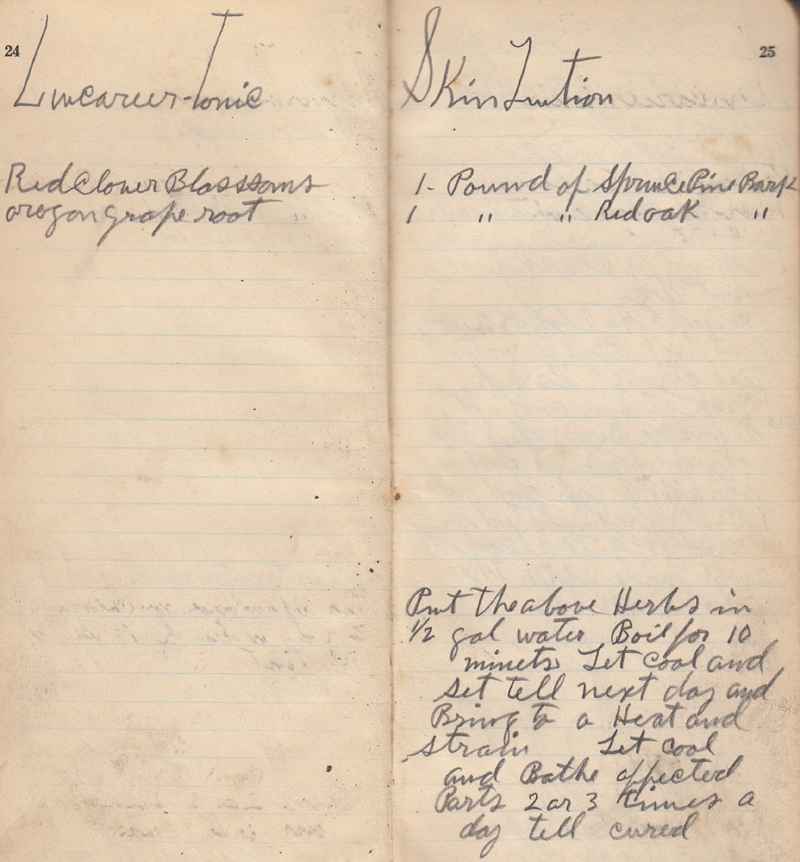 24
Tonic
Red Clover Blosssoms
oregon grape root
25
Skin Lution
1- Pound of Spruce Pine Bark
1 " " Red oak "
Put the above Herbs in
1/2 gal water Boil for 10
minets Let Cool and
set tell next day and
Bring to a Heat and
strain Let cool
and Bathe affected
Parts 2 or 3 times a
day tell cured